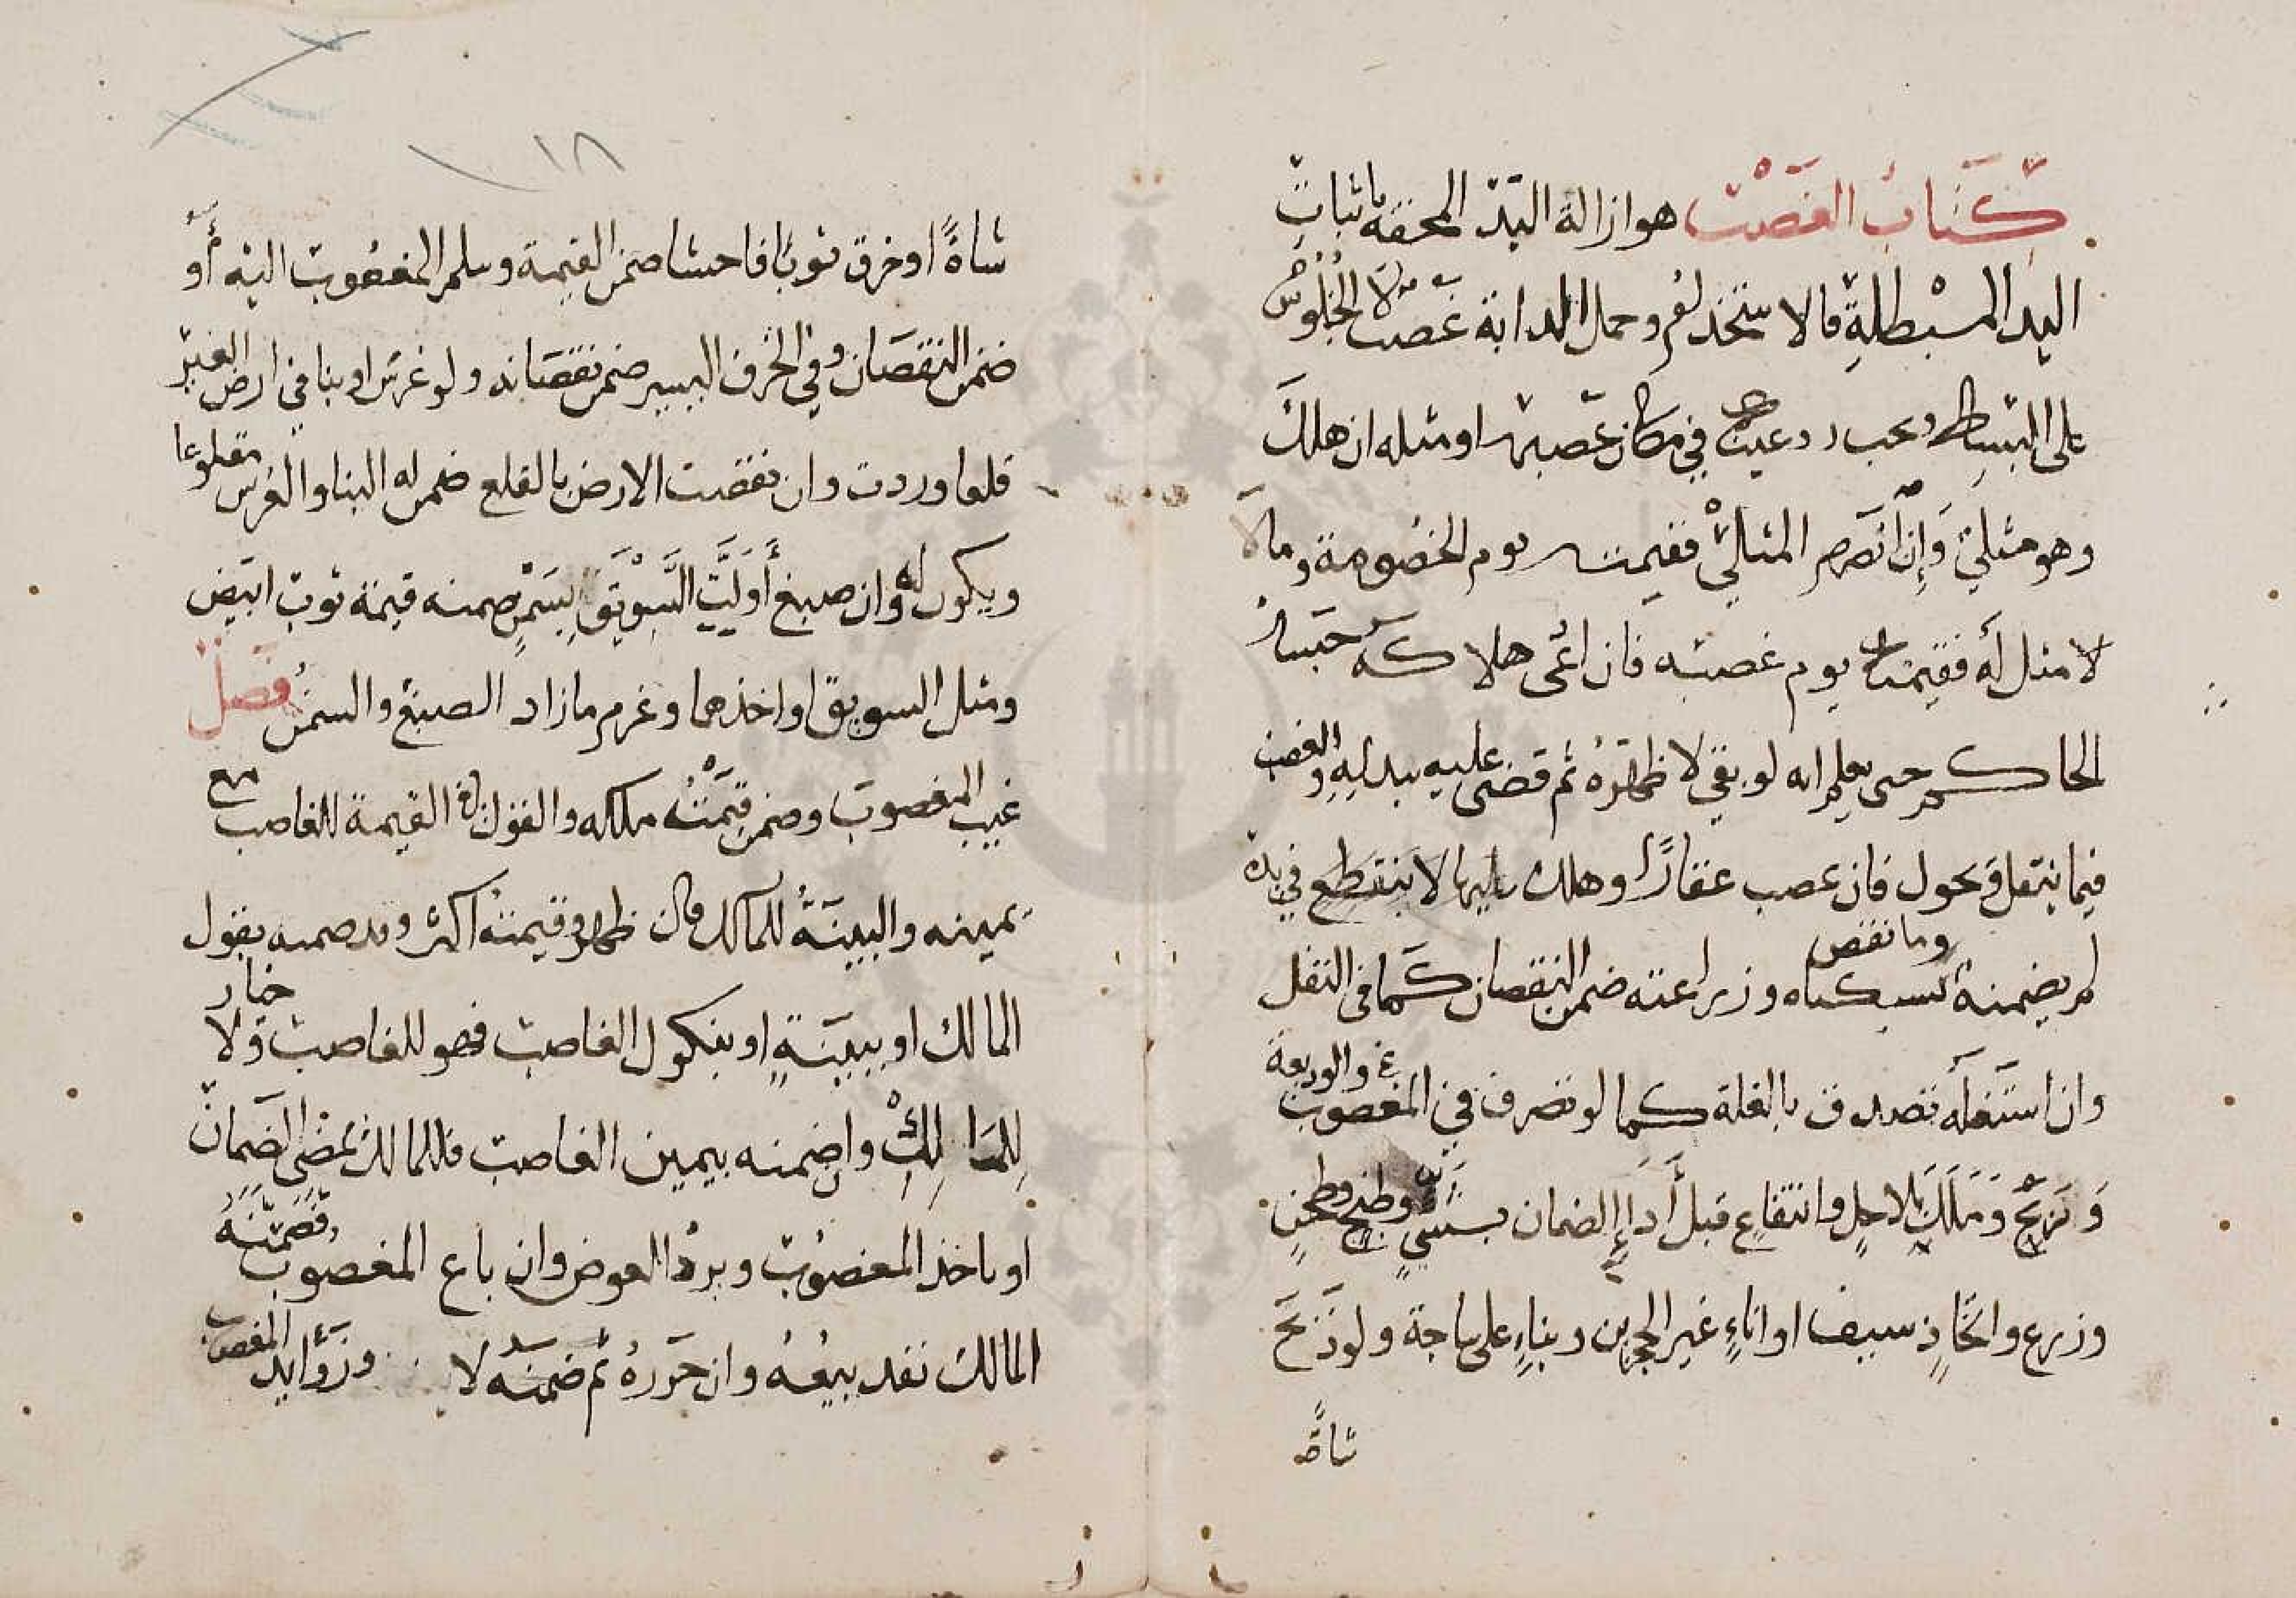 كتاب الغصب هو ازالة اليد المحقة باثبات
اليد المبطلة فالاستخدام وحمل الدابة غصب لا الجلوس
على البساط ويجب رد عينه في مكان غصبه او مثله ان هلك
وهو مثلي وإن انصرم المثلي فقيمته يوم الخصومة وما لا
لا مثل له فقيمته يوم غصبه فان ادعى هلاكه حبسه
الحاكم حتى يعلم انه لو بقي لاظهره ثم قضى عليه ببدله والغصب
فيما ينقل ويحول فان غصب عقارا وهلك في يده
لم يضمنه وما نقص بسكناه وزراعته ضمن النقصان كما في النقل
وان استغله تصدق بالغلة كما لو تصرف في المغصوب والوديعة
وربح وملك بلا حل وانتفاع قبل أداء الضمان بشي وطبخ وطحن
وزرع واتخاذ سيف او اناء غير الحجرين وبناء على ساجة ولو ذبح
شاة
١٨
شاة او خرق ثوبا فاحشا ضمن القيمة وسلم المغصوب اليه أو
ضمن النقصان وفي الخرق اليسير ضمن نقصانه ولو غرس او بنا في ارض الغير
قلعا وردت وان نقصت الارض بالقلع ضمن له البنا والغرس مقلوعا
ويكون له وان صبغ أو لت السويق بسمن ضمنه قيمة ثوب ابيض
ومثل السويق او اخذهما وغرم ما زاد الصبغ والسمن فصل
غيب المغصوب وضمن قيمته ملكه والقول في القيمة للغاصب مع
يمينه والبينة للمالك فان ظهر وقيمته اكثر وقد ضمنه بقول
المالك او ببينة او بنكول الغاصب فهو للغاصب ولا خيار
للمالك وان ضمنه بيمين الغاصب فالمالك يمضي الضمان
او ياخذ المغصوب ويرد العوض وان باع المغصوب فضمنه
المالك نفد بيعه وان حرره ثم ضمنه لا وزوايد المغصوب